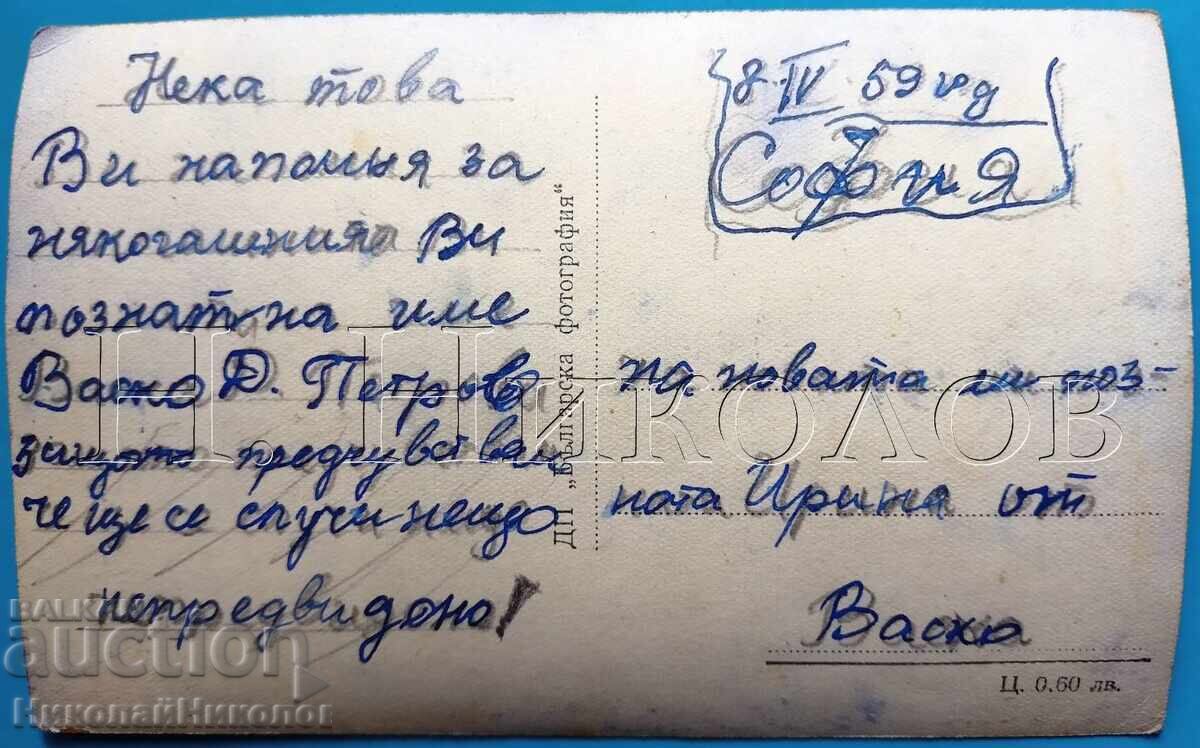 Нека това
Ви напомня за
някогашния Ви
познат на име
Васко Д. Петров
защото предчувствам
че ще се случи нещо
непредвидено!
ДП „Българска фотография“
8 IV 59 год
София
на новата ми поз-
ната Ирина от
Васко
Ц. 0.60 лв.
Н. Николов
BALKAN
auction
НиколайНиколов